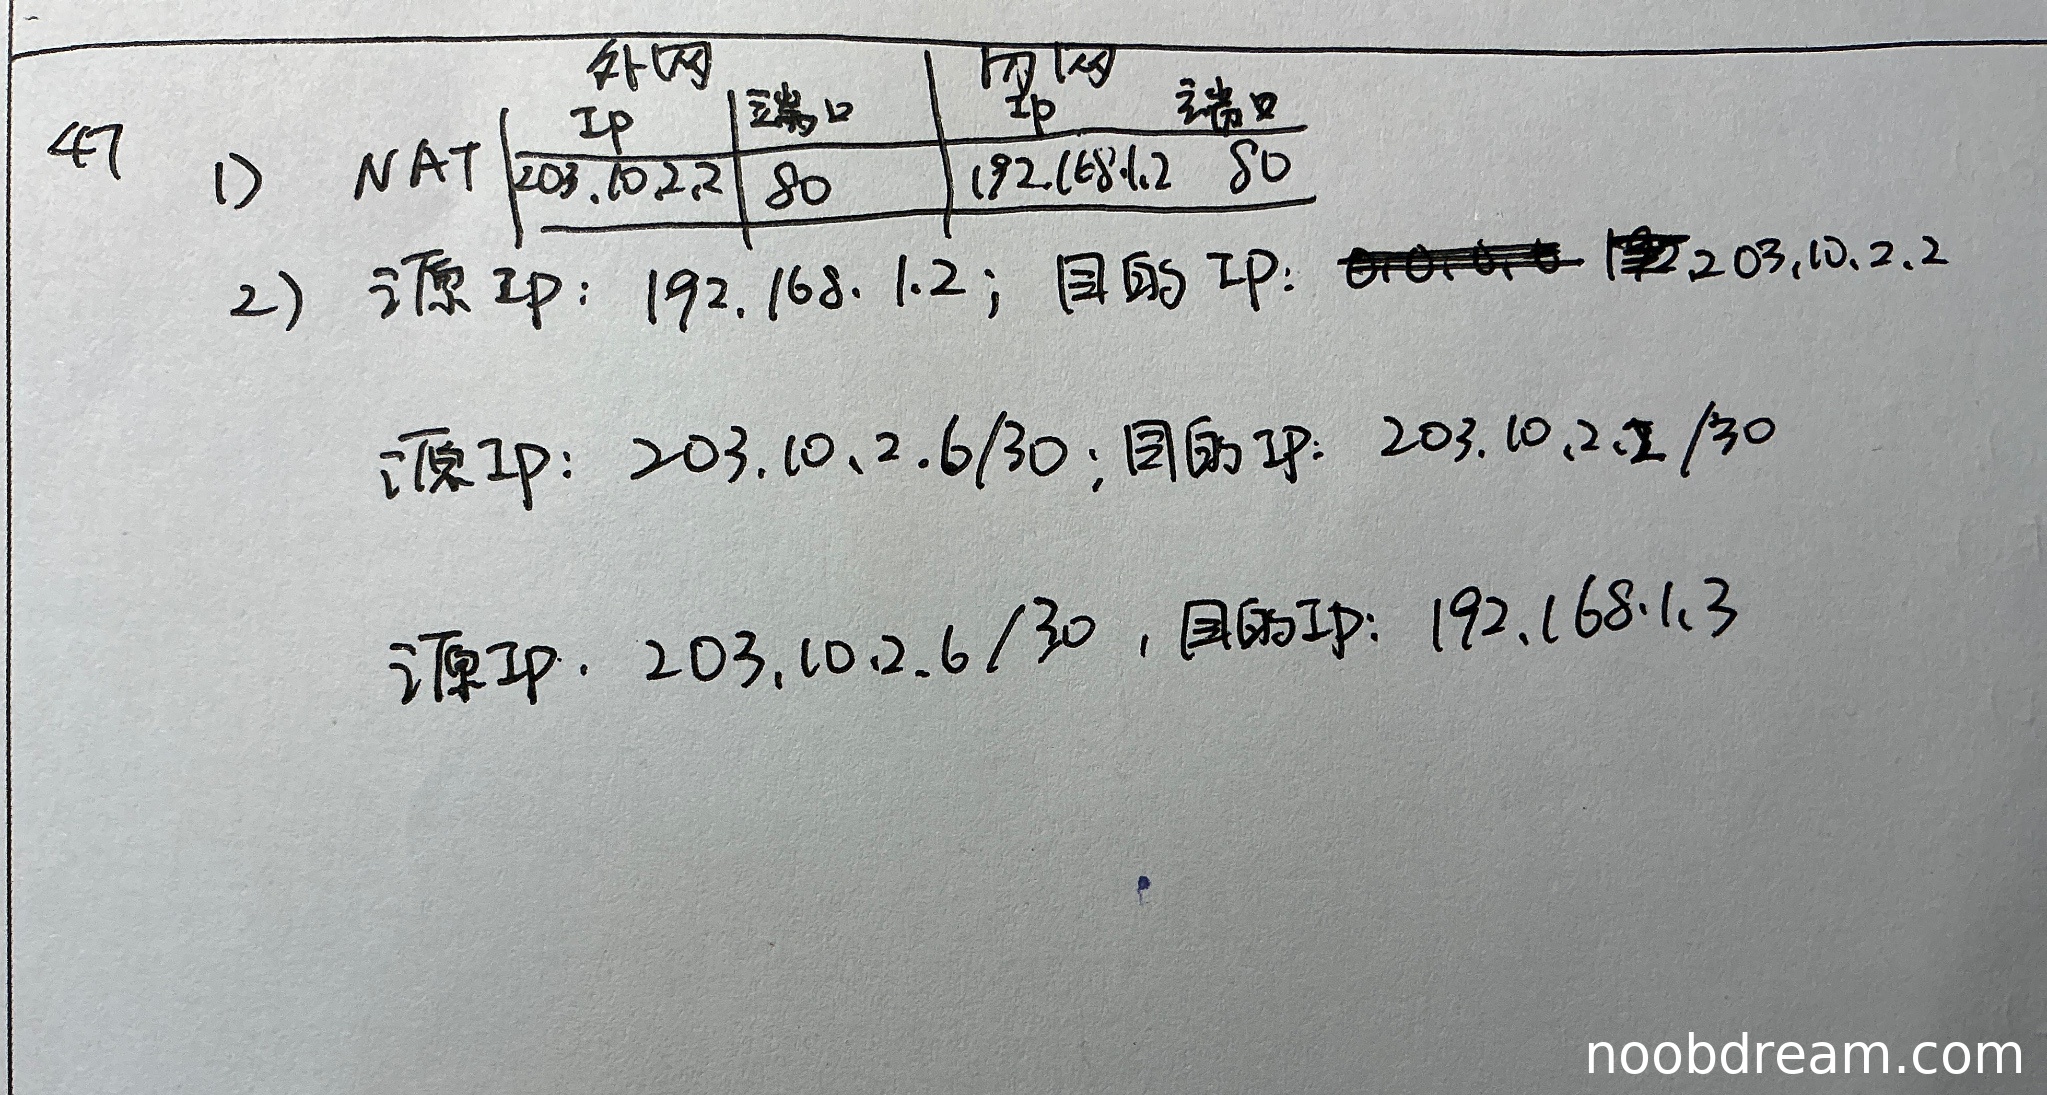 外网 内网
IP 端口 IP 端口
47 1) NAT 203.10.2.2 80 192.168.1.2 80
2) 源IP: 192.168.1.2; 目的IP: 203.10.2.2
源IP: 203.10.2.6/30; 目的IP: 203.10.2.2/30
源IP. 203.10.2.6/30, 目的IP: 192.168.1.3
noobdream.com